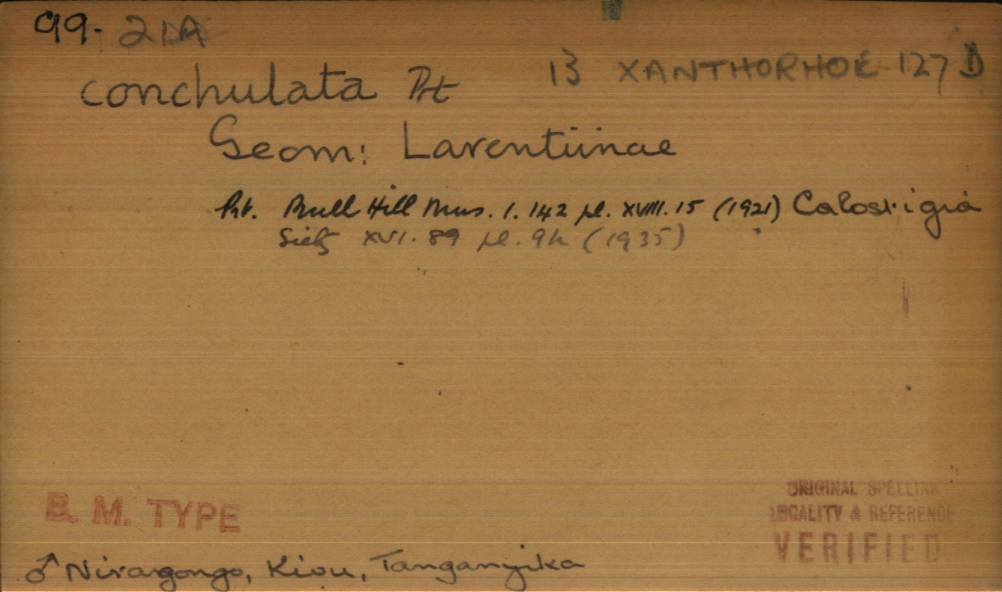 99. 21A
13 XANTHORHOE 127 D
conchulata Prt
Geom: Larentiinae
Prt. Bull Hill Mus. 1. 142 pl. XVIII. 15 (1921) Calostigia
Seitz XVI. 89 pl. 9h (1935)
B. M. TYPE
ORIGINAL SPELLING
LOCALITY & REFERENCE
VERIFIED
♂ Niragongo, Kivu, Tanganyika